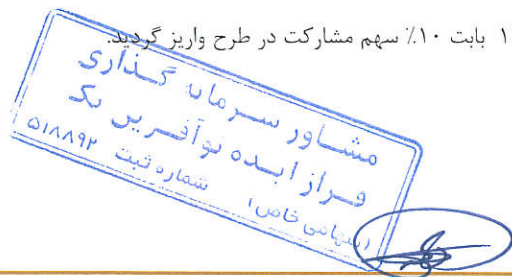 ۱ بابت ۱۰٪ سهم مشارکت در طرح واریز گردید.
مشاور سرمایه گذاری
فراز ایده نوآفرین تک
شماره ثبت ۵۱۸۸۹۲
(سهامی خاص)